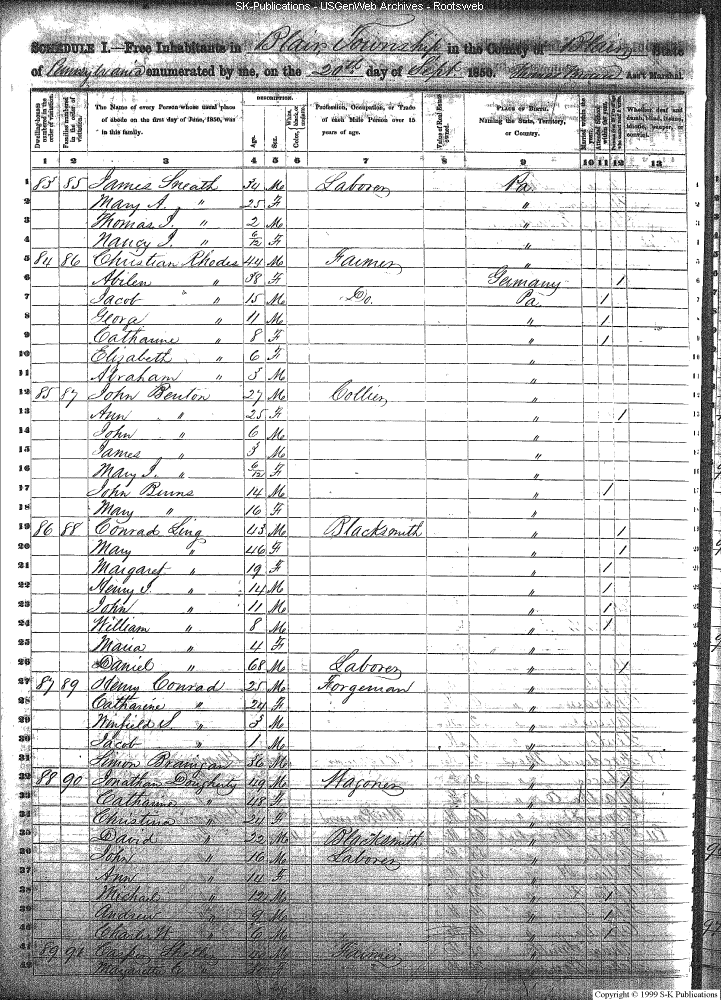 SK-Publications - USGenWeb Archives - Rootsweb
SCHEDULE I.—Free Inhabitants in Blair Township in the County of Blair State
of Pennsylvania enumerated by me, on the 20th day of Sept 1850. Ass't Marshal.
Dwelling-houses numbered in the order of visitation. Families numbered in the order of visitation. The Name of every Person whose usual place of abode on the first day of June, 1850, was in this family. DESCRIPTION. Age. Sex. Color, White, black, or mulatto. Profession, Occupation, or Trade of each Male Person over 15 years of age. Value of Real Estate owned. PLACE OF BIRTH. Naming the State, Territory, or Country. Married within the year. Attended School within the year. Whether deaf and dumb, blind, insane, idiotic, pauper, or convict.
1 2 3 4 5 6 7 8 9 10 11 12 13
1 83 85 James Sneath 34 M Laborer Pa
2 Mary A. " 25 F "
3 Thomas J. " 2 M "
4 Nancy J. " 6/12 F "
5 84 86 Christian Rhodes 44 M Farmer "
6 Abilen " 38 F Germany 1
7 Jacob " 15 M Do. Pa 1
8 Geora " 11 M " 1
9 Catharine " 8 F " 1
10 Elizabeth " 6 F "
11 Abraham " 3 M "
12 85 87 John Benton 27 M Collier "
13 Ann " 25 F " 1
14 John " 6 M "
15 James " 3 M "
16 Mary J. " 6/12 F "
17 John Burns 14 M " 1
18 Mary " 16 F "
19 86 88 Conrad Ling 43 M Blacksmith " 1
20 Mary " 46 F " 1
21 Margaret " 19 F " 1
22 Henry J. " 14 M " 1
23 John " 11 M " 1
24 William " 8 M " 1
25 Maria " 4 F "
26 Daniel " 68 M Laborer " 1
27 87 89 Henry Conrad 25 M Forgeman "
28 Catharine " 24 F "
29 Winfield S. " 3 M "
30 Jacob " 1 M "
31 Simon 36 M "
32 88 90 Jonathan Dougherty 49 M Wagoner " 1
33 Catharine " 48 F "
34 Christina " 24 F "
35 David " 22 M Blacksmith "
36 John " 16 M Laborer "
37 Ann " 14 F "
38 Michael " 12 M " 1
39 Andrew " 9 M " 1
40 Charles W. " 6 M " 1
41 89 91 Farmer "
42 Margaret "
Copyright © 1999 S-K Publications